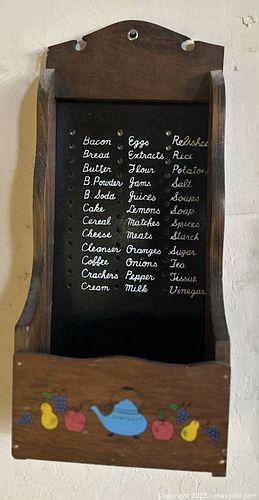 Bacon Eggs Relishes
Bread Extracts Rice
Butter Flour Potatoes
B. Powder Jams Salt
B. Soda Juices Soups
Cake Lemons Soap
Cereal Matches Spices
Cheese Meats Starch
Cleanser Oranges Sugar
Coffee Onions Tea
Crackers Pepper Tissue
Cream Milk Vinegar
Copyright 2025 - maxsold.com